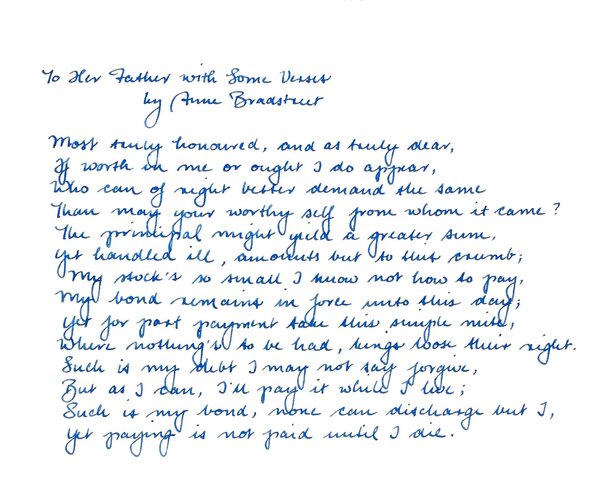 To Her Father with Some Verses
by Anne Bradstreet
Most truly honoured, and as truly dear,
If worth in me or ought I do appear,
Who can of right better demand the same
Than may your worthy self from whom it came?
The principal might yield a greater sum,
Yet handled ill, amounts but to this crumb;
My stock's so small I know not how to pay,
My bond remains in force unto this day;
Yet for part payment take this simple mite,
Where nothing's to be had, kings loose their right.
Such is my debt I may not say forgive,
But as I can, I'll pay it while I live;
Such is my bond, none can discharge but I,
Yet paying is not paid until I die.